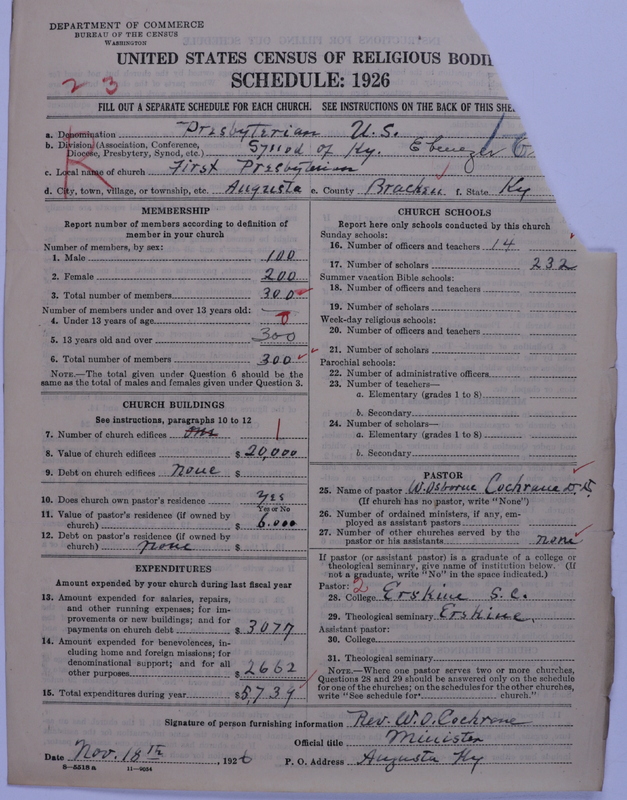 DEPARTMENT OF COMMERCE
BUREAU OF THE CENSUS
WASHINGTON
UNITED STATES CENSUS OF RELIGIOUS BODI
SCHEDULE: 1926
2 3
FILL OUT A SEPARATE SCHEDULE FOR EACH CHURCH. SEE INSTRUCTIONS ON THE BACK OF THIS SHE
a. Denomination Presbyterian U.S.
b. Division (Association, Conference, Diocese, Presbytery, Synod, etc.) Synod of Ky. Ebenezer
c. Local name of church First Presbyterian
d. City, town, village, or township, etc. Augusta e. County Bracken f. State Ky
MEMBERSHIP
Report number of members according to definition of
member in your church
Number of members, by sex:
1. Male 100
2. Female 200
3. Total number of members 300
Number of members under and over 13 years old:
4. Under 13 years of age 0
5. 13 years old and over 300
6. Total number of members 300
NOTE.—The total given under Question 6 should be the
same as the total of males and females given under Question 3.
CHURCH BUILDINGS
See instructions, paragraphs 10 to 12
7. Number of church edifices one 1
8. Value of church edifices $ 20,000
9. Debt on church edifices none $
10. Does church own pastor's residence yes
Yes or No
11. Value of pastor's residence (if owned by
church) $ 6.000
12. Debt on pastor's residence (if owned by
church) none $
EXPENDITURES
Amount expended by your church during last fiscal year
13. Amount expended for salaries, repairs,
and other running expenses; for im-
provements or new buildings; and for
payments on church debt $ 3077
14. Amount expended for benevolences, in-
cluding home and foreign missions; for
denominational support; and for all
other purposes $ 2662
15. Total expenditures during year $ 5,739
CHURCH SCHOOLS
Report here only schools conducted by this church
Sunday schools:
16. Number of officers and teachers 14
17. Number of scholars 232
Summer vacation Bible schools:
18. Number of officers and teachers
19. Number of scholars
Week-day religious schools:
20. Number of officers and teachers
21. Number of scholars
Parochial schools:
22. Number of administrative officers
23. Number of teachers—
a. Elementary (grades 1 to 8)
b. Secondary
24. Number of scholars—
a. Elementary (grades 1 to 8)
b. Secondary
PASTOR
25. Name of pastor W. Osborne Cochrane D.D.
(If church has no pastor, write "None")
26. Number of ordained ministers, if any, em-
ployed as assistant pastors
27. Number of other churches served by the
pastor or his assistants none
If pastor (or assistant pastor) is a graduate of a college or
theological seminary, give name of institution below. (If
not a graduate, write "No" in the space indicated.)
Pastor: 2
28. College Erskine S.C.
29. Theological seminary Erskine.
Assistant pastor:
30. College
31. Theological seminary
NOTE.—Where one pastor serves two or more churches,
Questions 28 and 29 should be answered only on the schedule
for one of the churches; on the schedules for the other churches,
write "See schedule for church."
Signature of person furnishing information Rev. W. O. Cochrane
Official title Minister
Date Nov. 18th, 1926 P. O. Address Augusta Ky
8—5518 a 11—9034